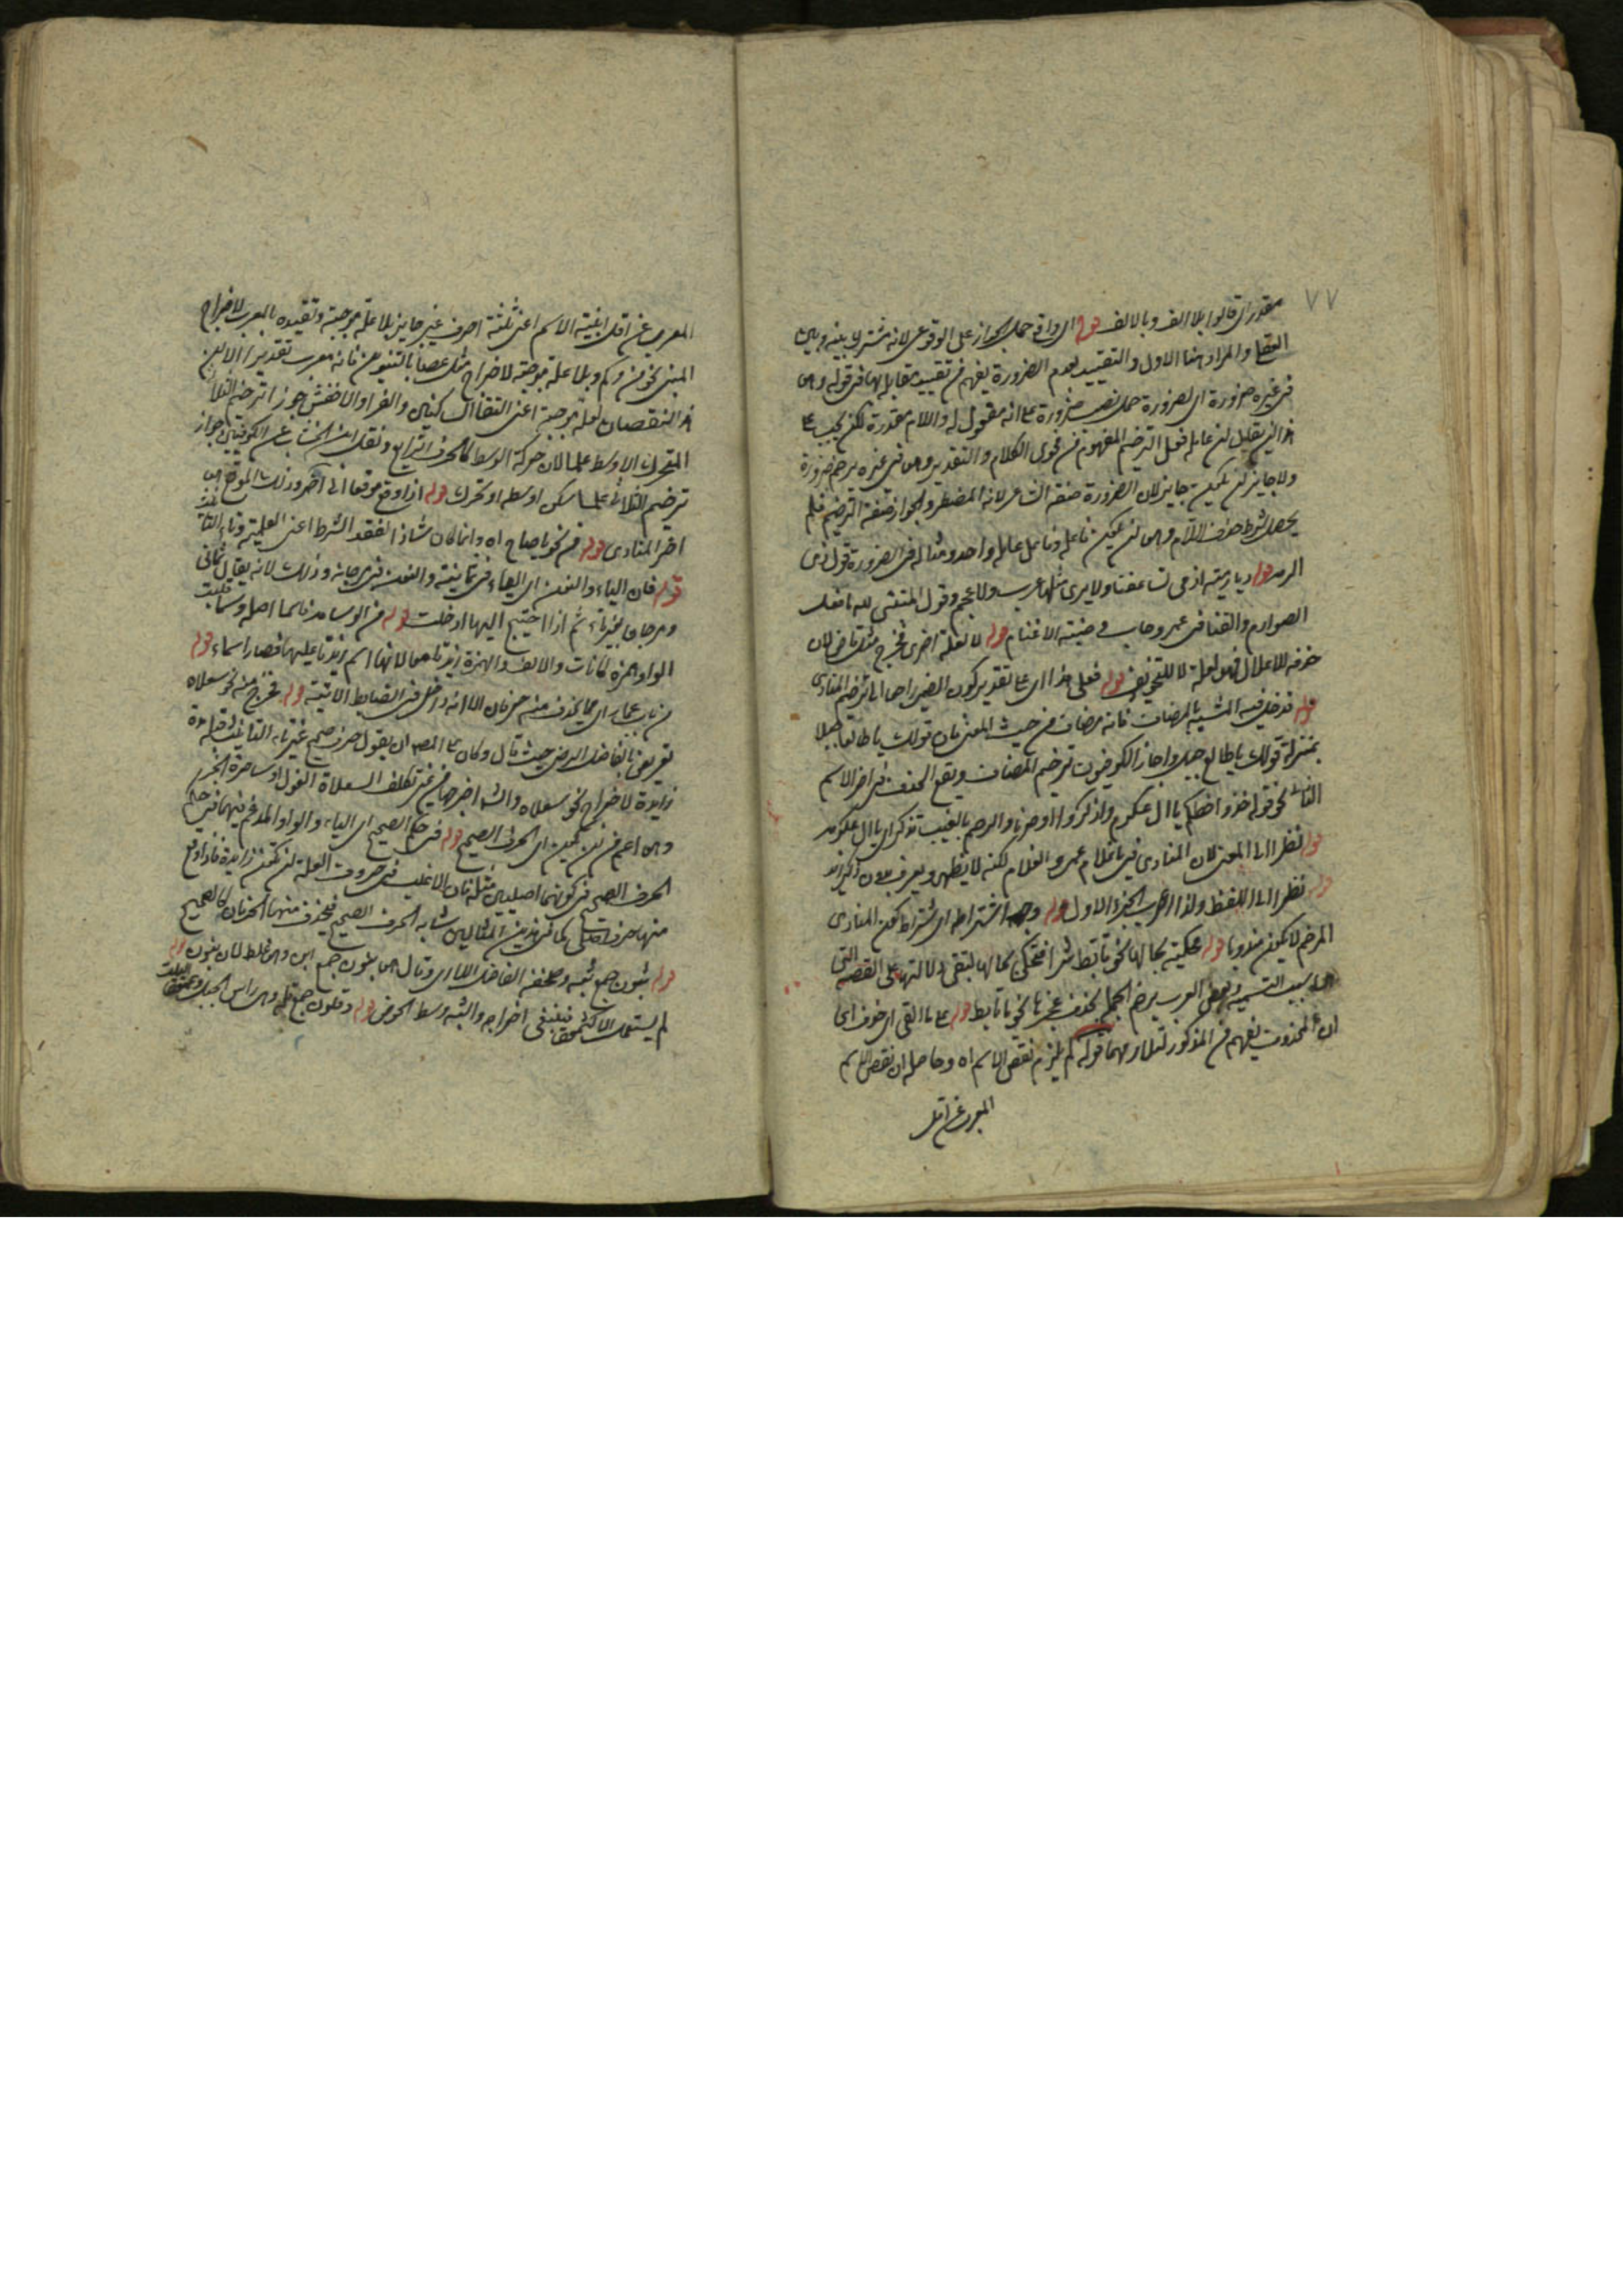 ٧٧
مقدر اى قالوا بلا الف وبالالف قوله اى واقع حمل الجواز على الوقوعى لانه مشترك بينه وبين
العقلى والمراد هنا الاول والتقييد لعدم الضرورة يفهم من تقييد مقابله بها فى قوله وهو
فى غيره ضرورة اى لضرورة حمل نصب ضرورة على انه مفعول له واللام مقدرة لكن يجب على
هذا التقدير ان عامله فعل الترخيم المفهوم من فحوى الكلام والتقدير وهو فى غيره يرخم ضرورة
ولا جايز ان يكون جايز لان الضرورة صفة الشاعر لانه المضطر والجواز صفة الترخيم فلم
يحصل شرط حذف اللام وهو ان يكون فاعله وفاعل عامله واحد ومثاله فى الضرورة قول ذى
الرمة قوله ديار مية اذ مى تساعفنا ولا يرى مثلها عرب ولا عجم وقول المتنبى لله ما فعل
الصوارم والقنا فى عمرو حاب وضبة الاغنام قوله لا لعلة اخرى فخرج مثل قاض لان
حذفه للاعلال فهو لعلة لا للتخفيف قوله فعلى هذا اى على تقدير كون الضمير راجعا الى ترخيم المنادى
قوله فدخل فيه المشبه بالمضاف فانه مضاف من حيث المعنى فان قولك يا طالعا جبلا
بمنزلة قولك يا طالع جبل واجاز الكوفيون ترخيم المضاف ويقع الحذف فى اخر الاسم
الثانى نحو قوله خذوا حظكم يا ال عكرم واذكروا اواصرنا والرحم بالغيب تذكر اى يا ال عكرمة
قوله نظرا الى المعنى لان المنادى فى يا غلام عمرو الغلام لكنه لا يظهر ويعرف بدون ذكر زيد
قوله نظرا الى اللفظ ولذا اعرب الجزء الاول قوله وجه اشتراطه اى شتراط كون المنادى
المرخم لا يكون مندوبا قوله محكية بحالها نحو تأبط شرا فتحكى بحالها لتبقى دلالتها على القصة التى
هى سبب التسمية وبعض العرب يرخم الجمل بحذف عجزها نحو يا تأبط قوله على ما القى اى حذف اى
ان المحذوف يفهم من المذكور لتلازمهما قوله لم يلزم نقص الاسم اه وحاصله ان نقص الاسم
المعرب عن اقل
المعرب عن اقل ابنية الاسم اعنى ثلثة احرف غير جايز بلا علة موجبة وتقييده بالمعرب لاخراج
المبنى نحو من وكم وبلا علة موجبة لاخراج مثل عصا بالتنوين فانه معرب تقديرا الا ان
هذا النقصان لعلة موجبة اعنى التقاء الساكنين والفرا والاخفش جوزا ترخيم الثلاثى
المتحرك الاوسط علما لان حركة الوسط كالحرف الرابع ونقل ابن الخشاب عن الكوفيين جواز
ترخيم الثلاثى علما سكن اوسطه او تحرك قوله اذا وقع موقعا الى اخره وذلك الموقع هو
اخر المنادى قوله فى نحو يا صاح اه وانما كان شاذا لفقد الشرط اعنى العلمية وتاء التأنيث
قوله فان الياء والنون اى الياء فى ثمانية والنون فى مرجانة وذلك لانه يقال ثمانى
ومرجان بغير تاء ثم اذا احتيج اليها ادخلت قوله من الوسامة فاسما اصله وسما قلبت
الواو همزة كاناث والالف والهمزة زيدتا معا لانهما اسم زيدتا عليها فصار اسماء قوله
من باب عمار اى مما يحذف منه حرفان الا انه داخل فى الضابط الاتية قوله فخرج منه نحو سعلاه
تعريض بالفاضل الرضى حيث قال وكان على المص ان يقول حرف صحيح غير تاء التأنيث قبله مدة
زايدة لاخراج نحو سعلاه والشه اخرجها من غير تكلف السعلاة الغول او ساحرة الجن
وهو اعم من ان يكون اى الحرف الصحيح قوله فى حكم الصحيح اى الياء والواو المدغم فيهما فى حكم
الحرف الصحيح فى كونهما اصليين مثله فان الاغلب فى حروف العلة ان تكون زايدة فاذا وقع
منها حرف اصلى كما فى هذين المثالين شابه الحرف الصحيح فيحذف منها الحرفان كالصحيح
قوله ثبون جمع ثبة وصحفه الفاضل اللارى وقال هو بنون جمع ابن وهو غلط لان بنون
لم يستعمل الا كثر فينبغى اخراجه والثبة وسط الحوض قوله وقلون جمع قلة وهى راس الجبل